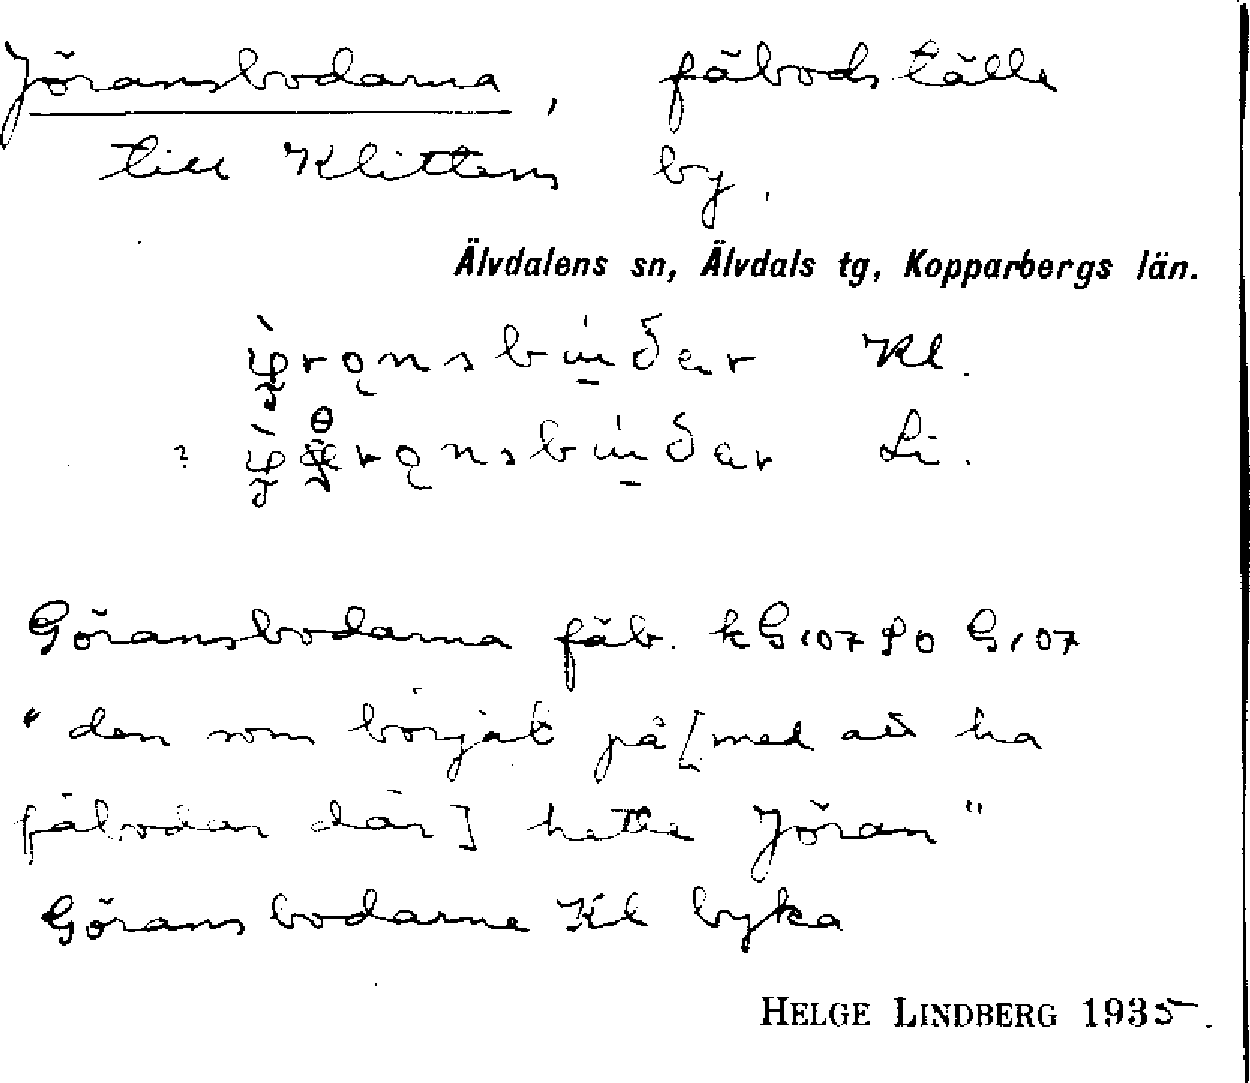 Jöransbodarna, fäbodställe
till Klittens by.
Älvdalens sn, Älvdals tg, Kopparbergs län.
Kl.
? Li.
Göransbodarna fäb. kG107 Po G107
"den som börjat på [med att ha
fäbodar där] hette Jöran"
Göransbodarne Kl byka
HELGE LINDBERG 1935.